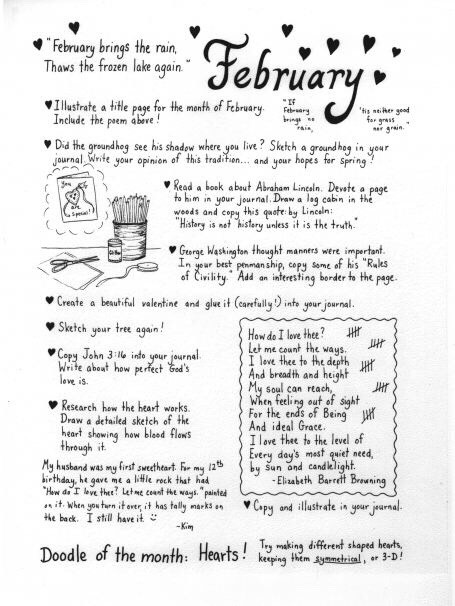 "February brings the rain,
Thaws the frozen lake again."
February
"If
February
brings no
rain,
'tis neither good
for grass
nor grain."
Illustrate a title page for the month of February.
Include the poem above!
Did the groundhog see his shadow where you live? Sketch a groundhog in your
journal. Write your opinion of this tradition... and your hopes for spring!
You
are
special!
Glue
Read a book about Abraham Lincoln. Devote a page
to him in your journal. Draw a log cabin in the
woods and copy this quote by Lincoln:
"History is not history unless it is the truth."
George Washington thought manners were important.
In your best penmanship, copy some of his "Rules
of Civility." Add an interesting border to the page.
Create a beautiful valentine and glue it (carefully!) into your journal.
Sketch your tree again!
Copy John 3:16 into your journal.
Write about how perfect God's
love is.
Research how the heart works.
Draw a detailed sketch of the
heart showing how blood flows
through it.
My husband was my first sweetheart. For my 12th
birthday, he gave me a little rock that had
"How do I love thee? Let me count the ways." painted
on it. When you turn it over, it has tally marks on
the back. I still have it
-Kim
How do I love thee?
Let me count the ways.
I love thee to the depth
And breadth and height
My soul can reach,
When feeling out of sight
For the ends of Being
And ideal Grace.
I love thee to the level of
Every day's most quiet need,
by Sun and candlelight.
-Elizabeth Barrett Browning
Copy and illustrate in your journal.
Doodle of the month: Hearts!
Try making different shaped hearts,
keeping them symmetrical, or 3-D!